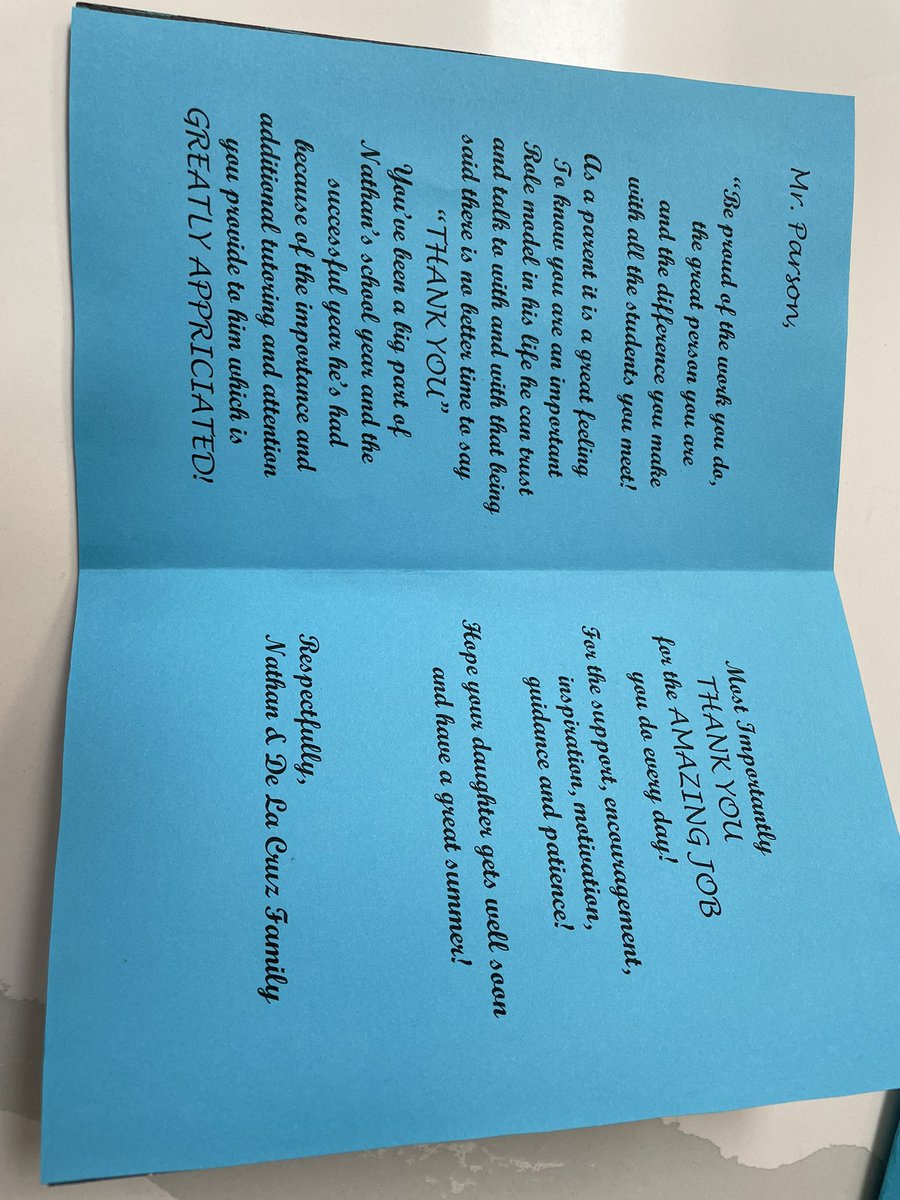 Mr. Parson,
“Be proud of the work you do,
the great person you are
and the difference you make
with all the students you meet!
As a parent it is a great feeling
To know you are an important
Role model in his life he can trust
and talk to with and with that being
said there is no better time to say
“THANK YOU”
You’ve been a big part of
Nathan’s school year and the
successful year he’s had
because of the importance and
additional tutoring and attention
you provide to him which is
GREATLY APPRICIATED!
Most Importantly
THANK YOU
for the AMAZING JOB
you do every day!
For the support, encouragement,
inspiration, motivation,
guidance and patience!
Hope your daughter gets well soon
and have a great summer!
Respectfully,
Nathan & De La Cruz Family